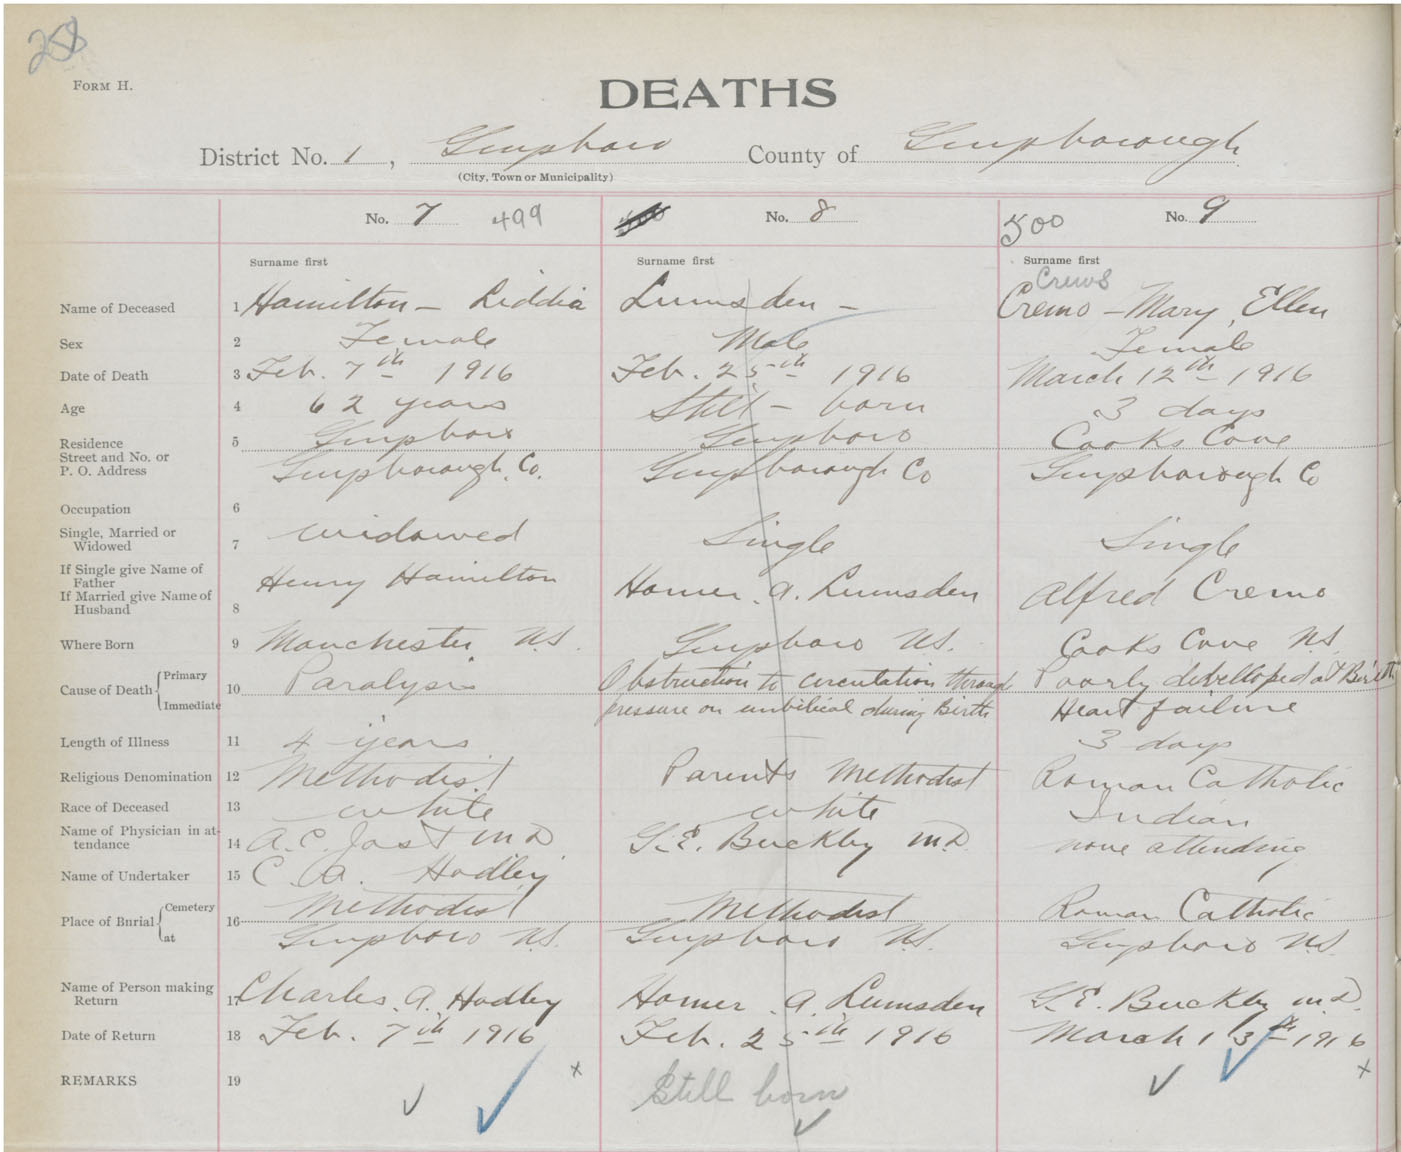 28
FORM H.
DEATHS
District No. 1, Guysboro County of Guysborough
(City, Town or Municipality)
No. 7 499 500 No. 8 500 No. 9
Surname first Surname first Surname first
Crews
Name of Deceased 1 Hamilton — Liddia Lumsden — Cremo — Mary, Ellen
Sex 2 Female Male Female
Date of Death 3 Feb. 7th 1916 Feb. 25th 1916 March 12th 1916
Age 4 62 years Still - born 3 days
Residence 5 Guysboro Guysboro Cooks Cove
Street and No. or
P. O. Address Guysborough, Co. Guysborough Co Guysborough Co
Occupation 6
Single, Married or
Widowed 7 widowed Single Single
If Single give Name of
Father Henry Hamilton
If Married give Name of
Husband 8 Homer. A. Lumsden Alfred Cremo
Where Born 9 Manchester N.S. Guysboro N.S. Cooks Cove N.S.
Cause of Death Primary 10 Paralysis Obstruction to circulation through Poorly develloped at Birth
Immediate pressure on umbilical during Birth Heart failure
Length of Illness 11 4 years 3 days
Religious Denomination 12 Methodist Parents Methodist Roman Catholic
Race of Deceased 13 white white Indian
Name of Physician in at-
tendance 14 A. C. Jost M D G. E. Buckley M.D. none attending
Name of Undertaker 15 C. A. Hadley
Place of Burial Cemetery 16 Methodist Methodist Roman Catholic
at Guysboro N.S. Guysboro N.S. Guysboro N.S.
Name of Person making
Return 17 Charles. A. Hadley Homer. A. Lumsden G. E. Buckley M.D.
Date of Return 18 Feb. 7th 1916 Feb. 25th 1916 March 13th 1916
REMARKS 19 Still born